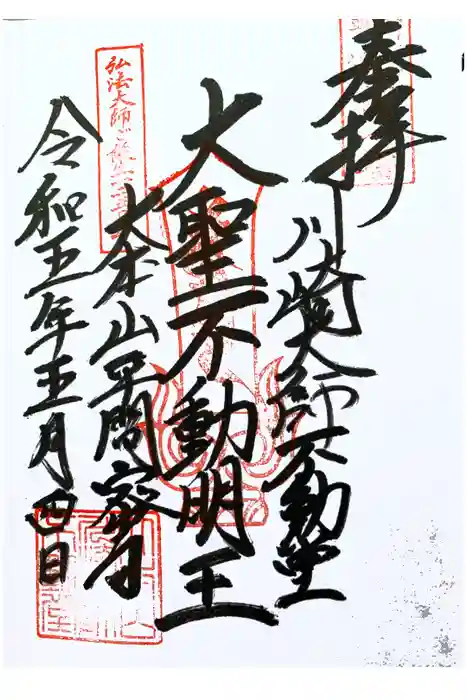 奉拝
川崎大師不動堂
大聖不動明王
大本山平間寺
令和五年五月四日
弘法大師ご誕生